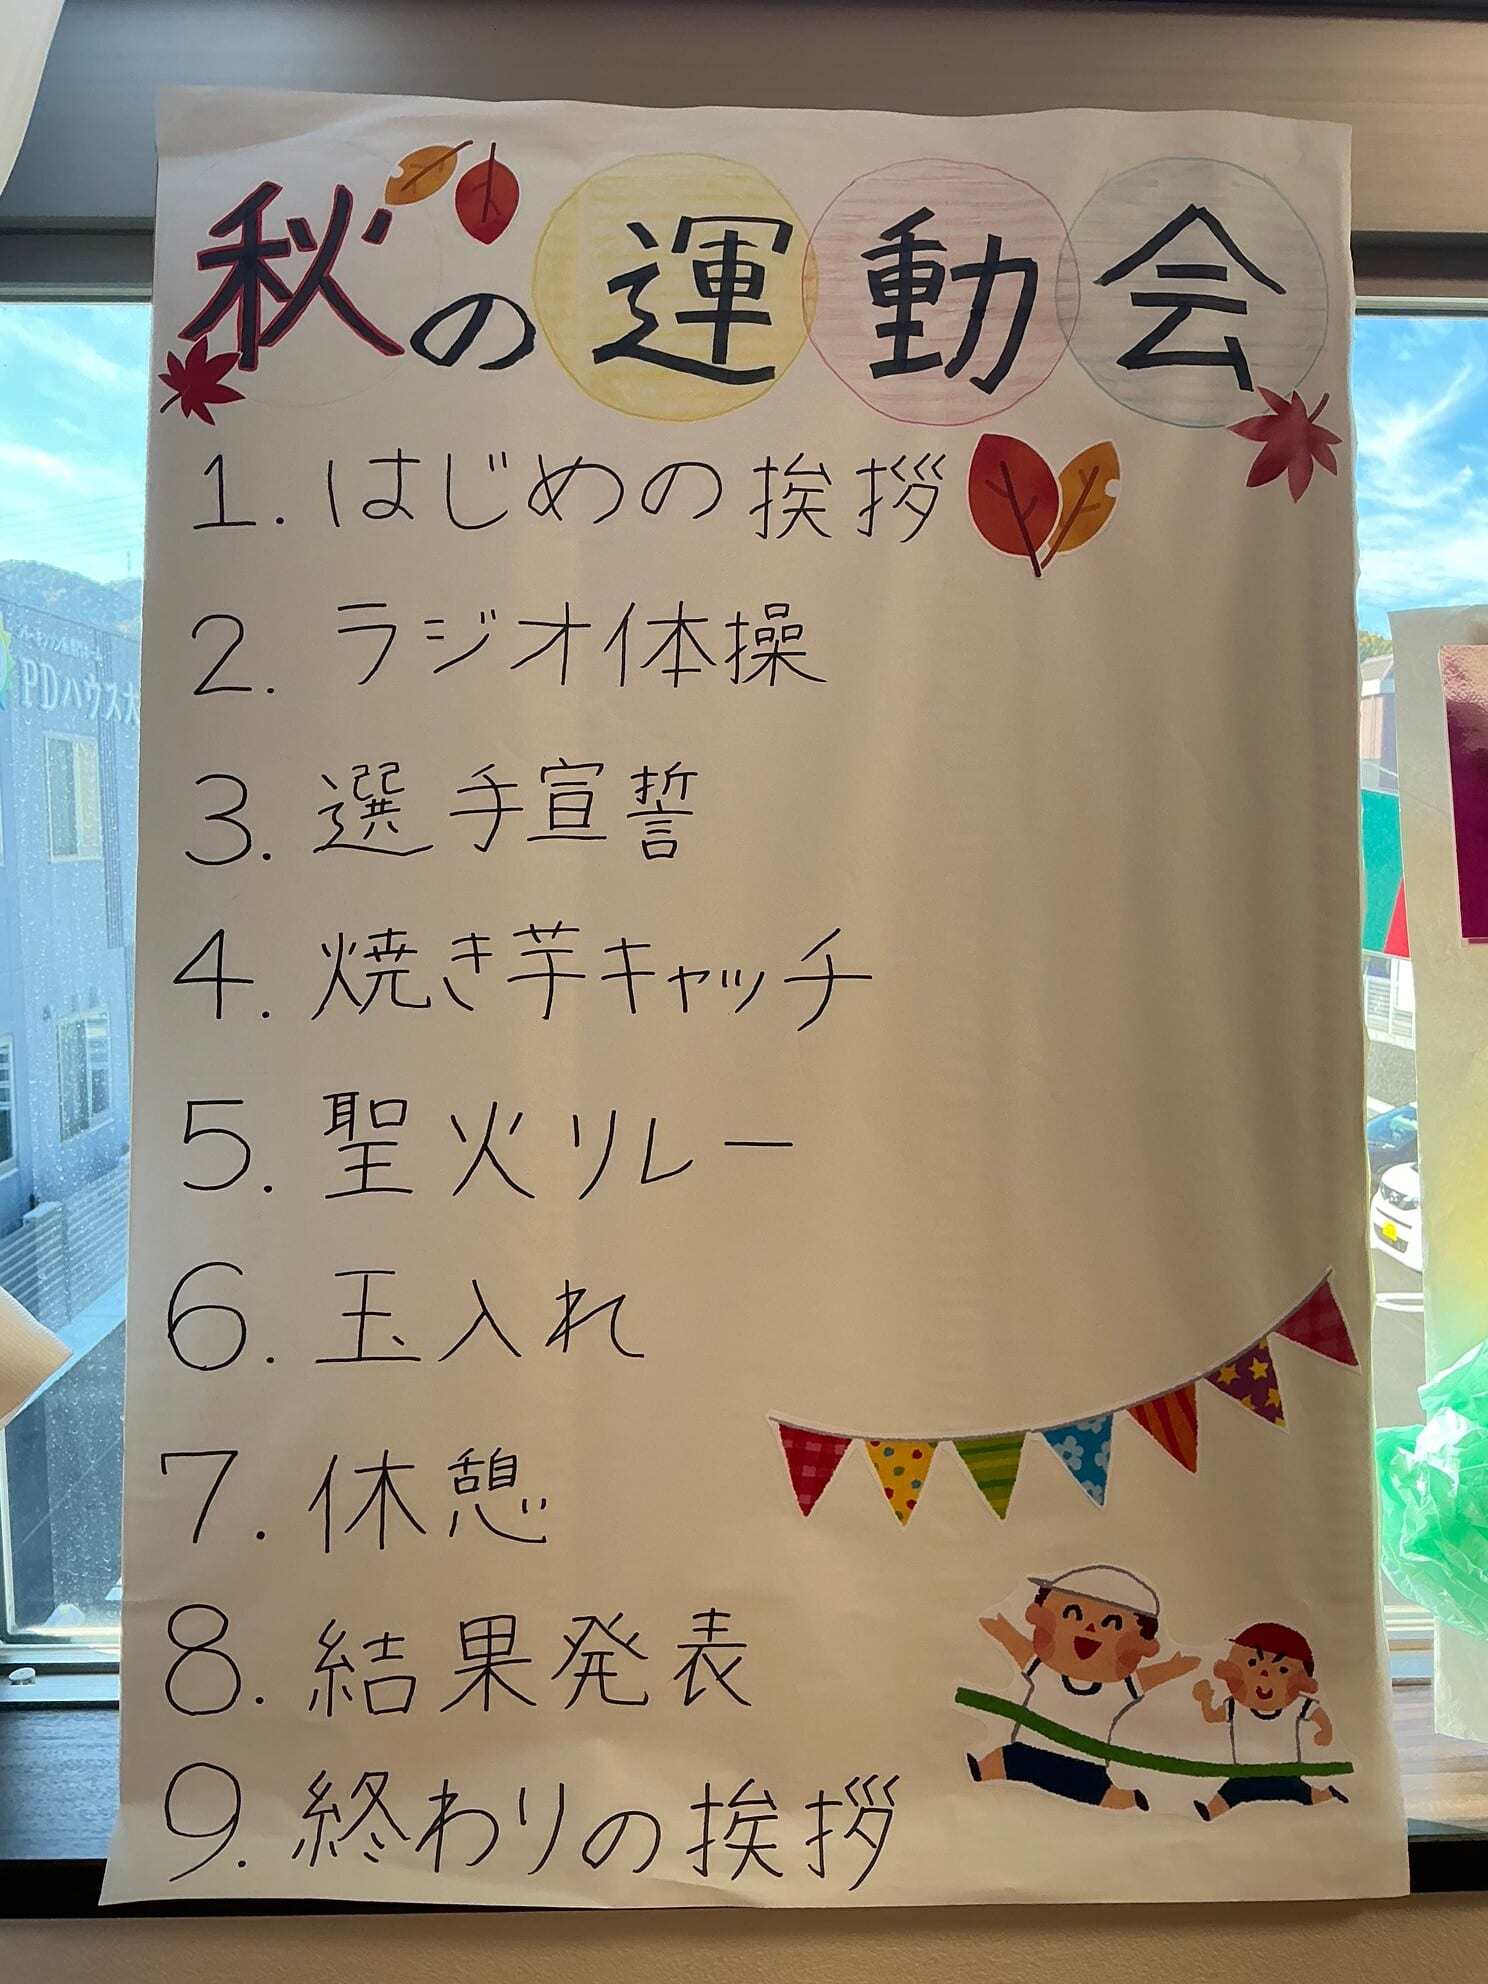 秋の運動会
1. はじめの挨拶
2. ラジオ体操
3. 選手宣誓
4. 焼き芋キャッチ
5. 聖火リレー
6. 玉入れ
7. 休憩
8. 結果発表
9. 終わりの挨拶
PDハウス大